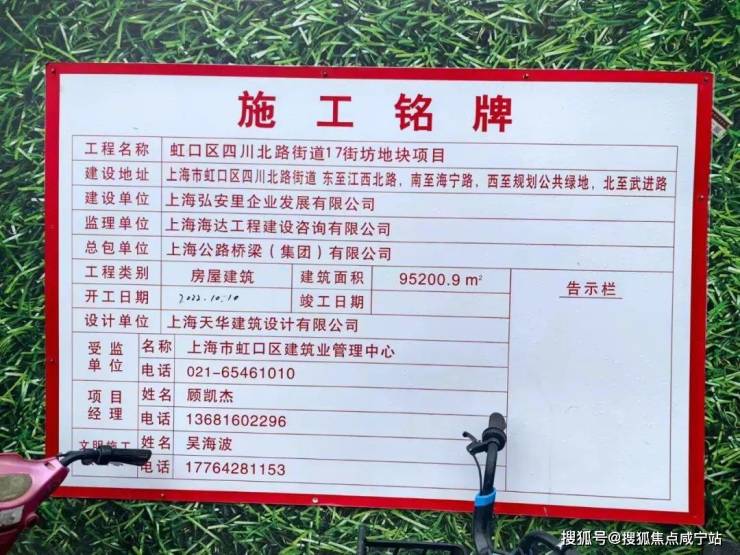 施工铭牌
工程名称 虹口区四川北路街道17街坊地块项目
建设地址 上海市虹口区四川北路街道 东至江西北路，南至海宁路，西至规划公共绿地，北至武进路
建设单位 上海弘安里企业发展有限公司
监理单位 上海海达工程建设咨询有限公司
总包单位 上海公路桥梁（集团）有限公司
工程类别 房屋建筑 建筑面积 95200.9 m² 告示栏
开工日期 2022.10.10 竣工日期
设计单位 上海天华建筑设计有限公司
受监单位 名称 上海市虹口区建筑业管理中心
电话 021-65461010
项目经理 姓名 顾凯杰
电话 13681602296
文明施工 姓名 吴海波
电话 17764281153
搜狐号@搜狐焦点咸宁站